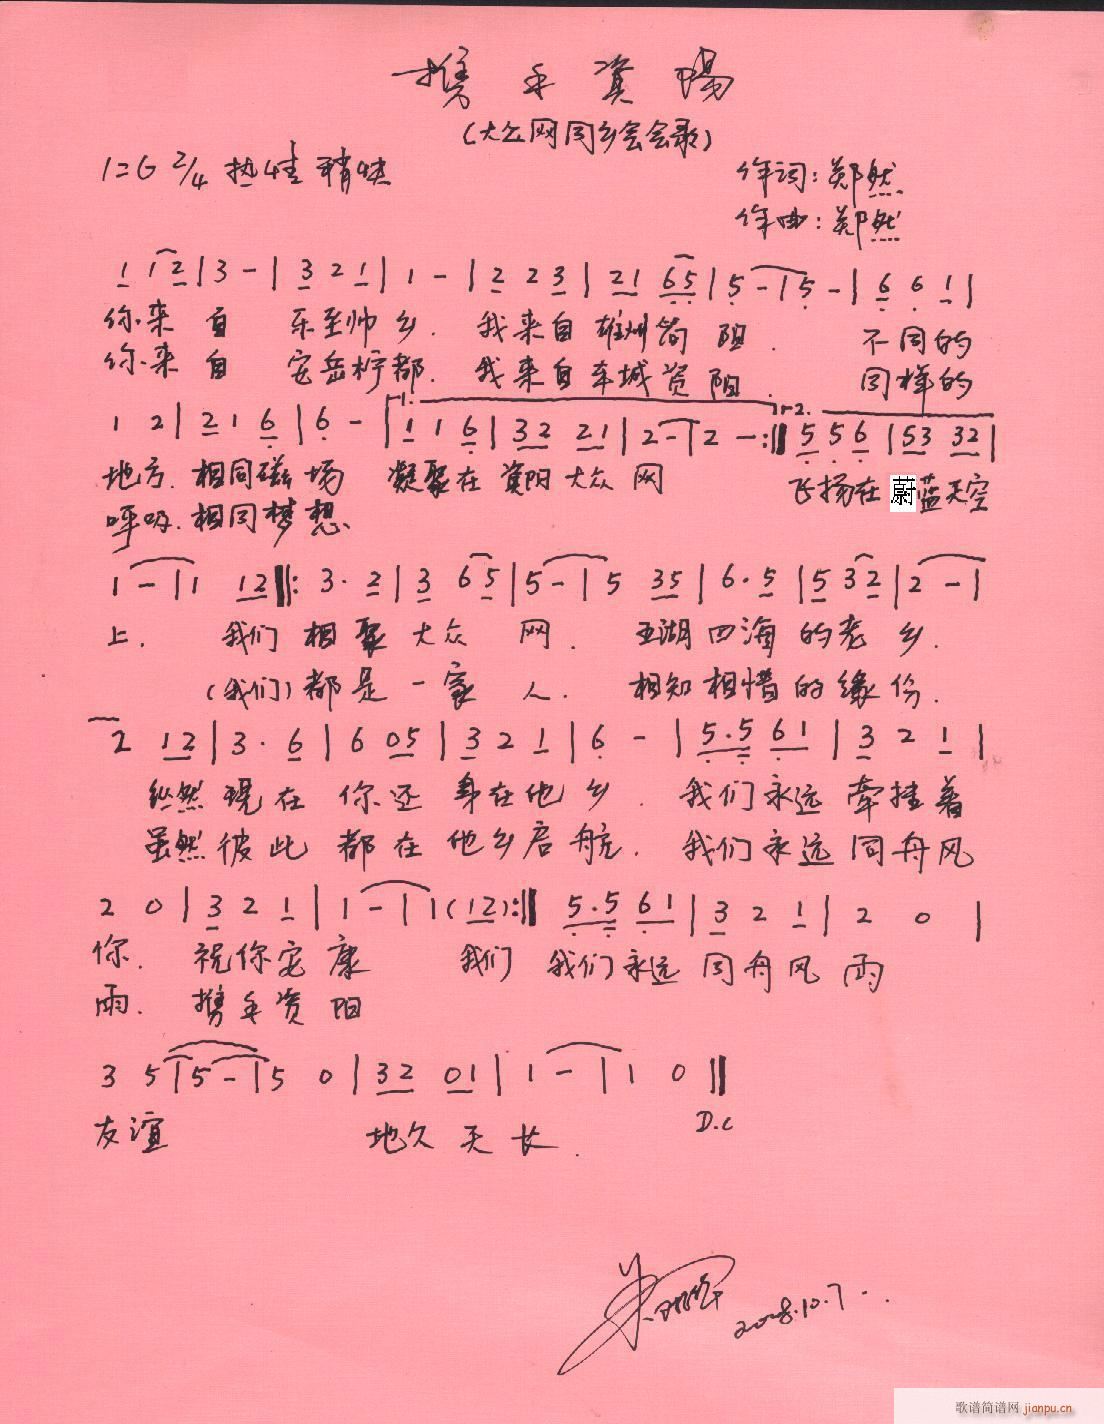 携手资陽
(大众网同乡会会歌)
1=G 2/4 热情 稍快
作词:郑然
作曲:郑然
1 12|3 -|3 2 1|1 -|2 2 3|21 65|5 -|5 -|6 6 1|
你来自 乐至帅乡. 我来自雄州简阳. 不同的
你来自 安岳柠都. 我来自车城资阳. 同样的
1 2|2 1 6|6 -|1.1 1 6|32 21|2 -|2 -:‖2.5 5 6|53 32|
地方.相同磁场 凝聚在資阳大众网 飞扬在蔚蓝天空
呼吸.相同梦想
1 -|1 12‖:3·2|3 65|5 -|5 35|6·5|5 32|2 -|
上. 我们相聚大众网. 五湖四海的老乡.
(我们)都是一家人. 相知相惜的缘份.
2 12|3·6|6 05|3 2 1|6 -|5·5 61|3 2 1|
纵然现在你还身在他乡. 我们永远牵挂着
虽然彼此都在他乡启航. 我们永远同舟风
2 0|3 2 1|1 -|1(12):‖5·5 61|3 2 1|2 0|
你. 祝你安康 我们 我们永远同舟风雨
雨. 携手资阳
3 5|5 -|5 0|32 01|1 -|1 0‖
友谊 地久天长.
D.C
2008.10.7
歌谱简谱网 jianpu.cn